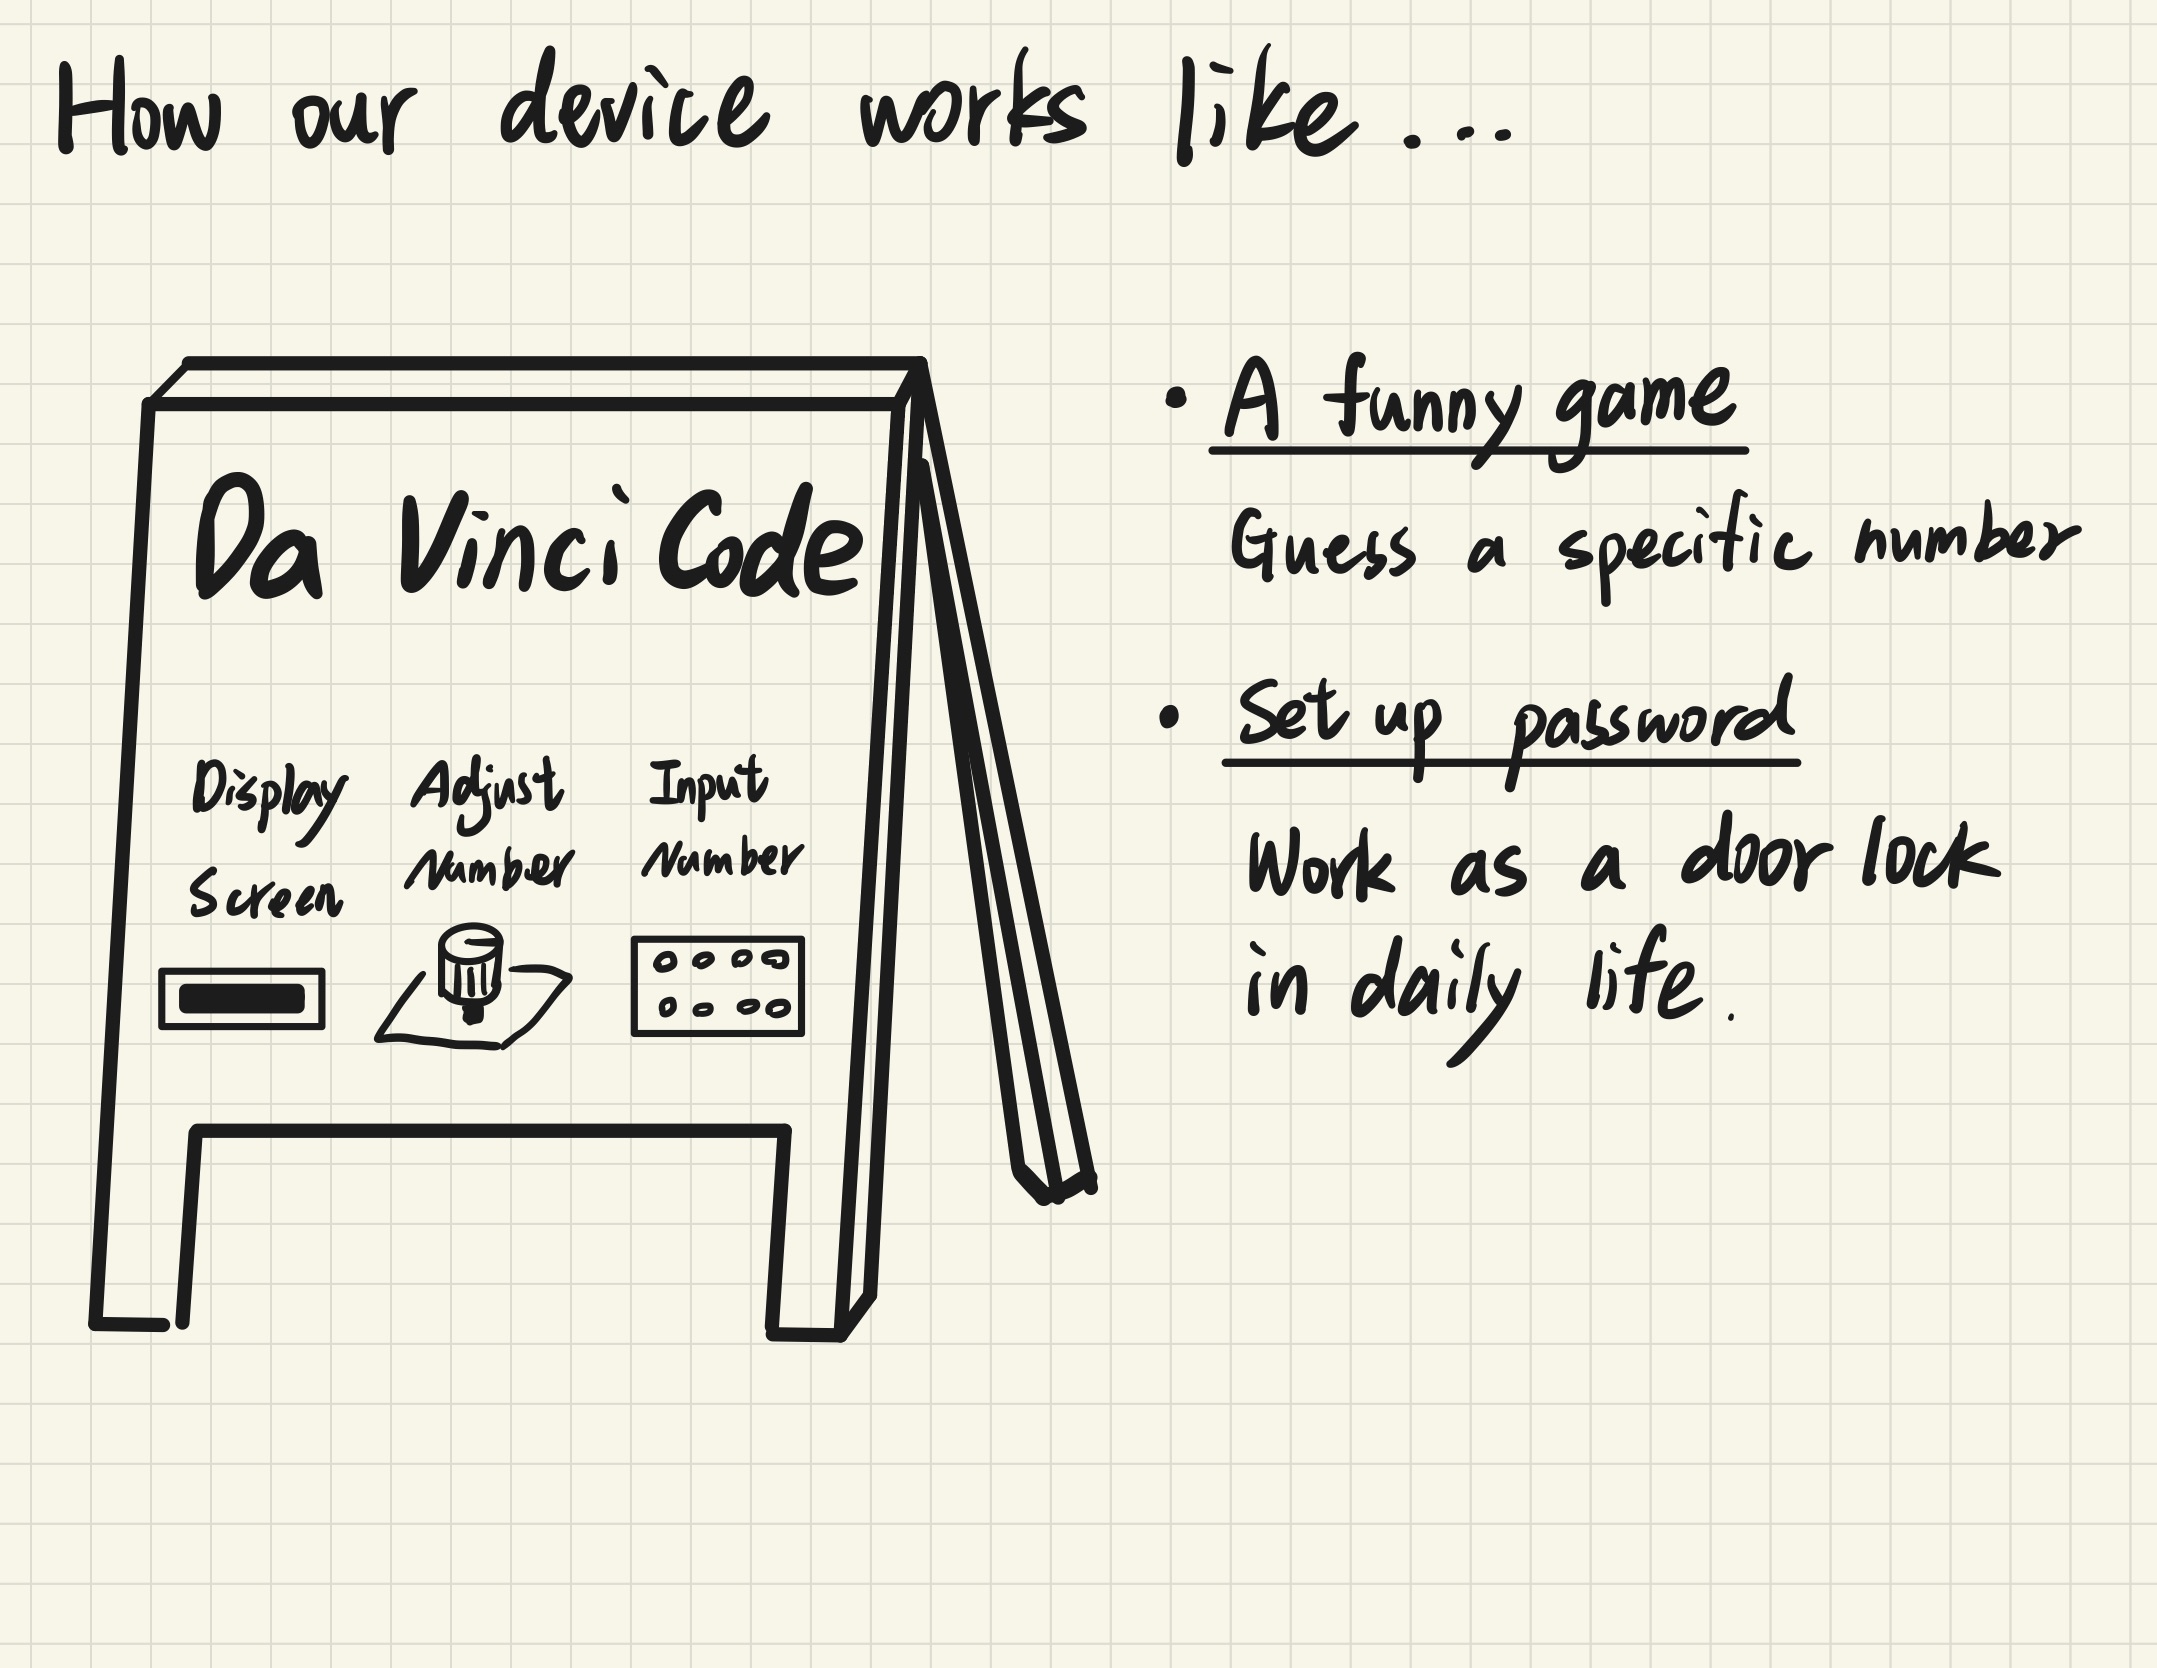 How our device works like....
Da Vinci Code
Display
Screen
Adjust
Number
Input
Number
• A funny game
Guess a specific number
• Set up password
Work as a door lock
in daily life.